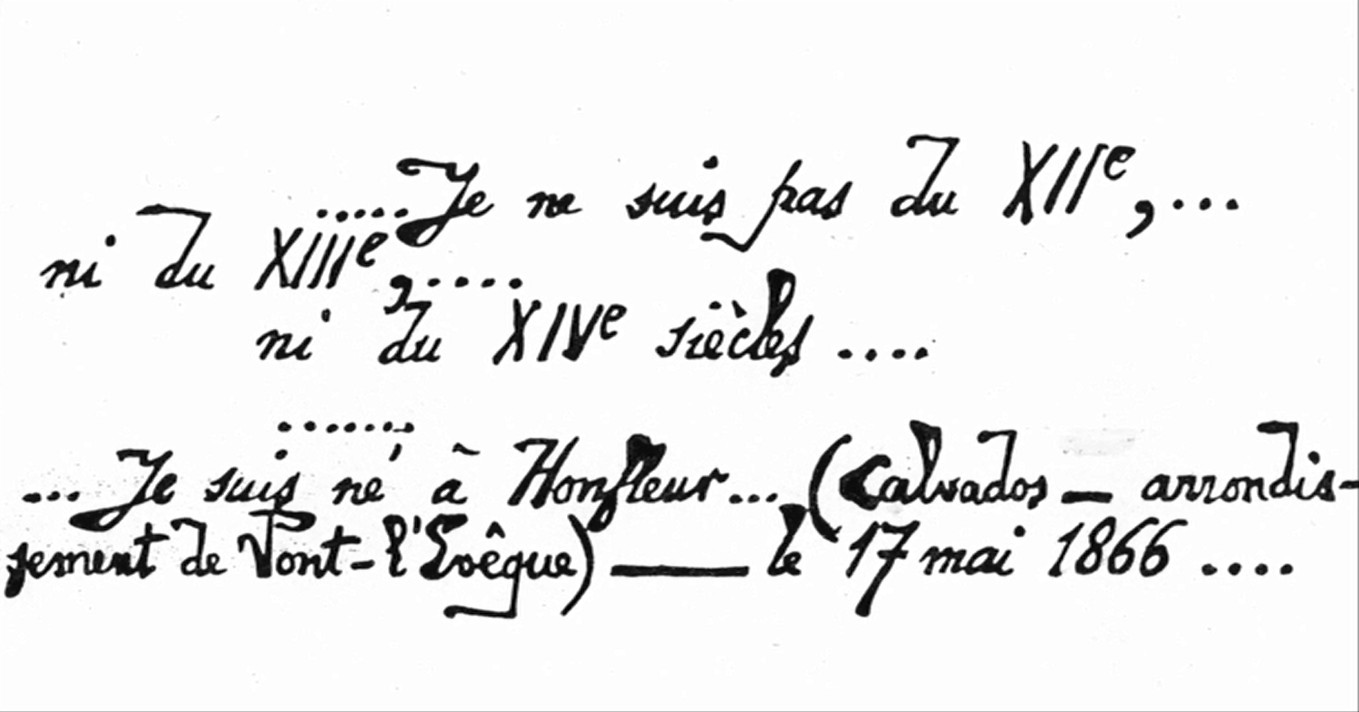 .....Je ne suis pas du XIIe,...
ni du XIIIe,.....
ni du XIVe siècles ....
.......
... Je suis né à Honfleur... (Calvados — arrondis-
sement de Pont-l'Evêque) — le 17 mai 1866 ....